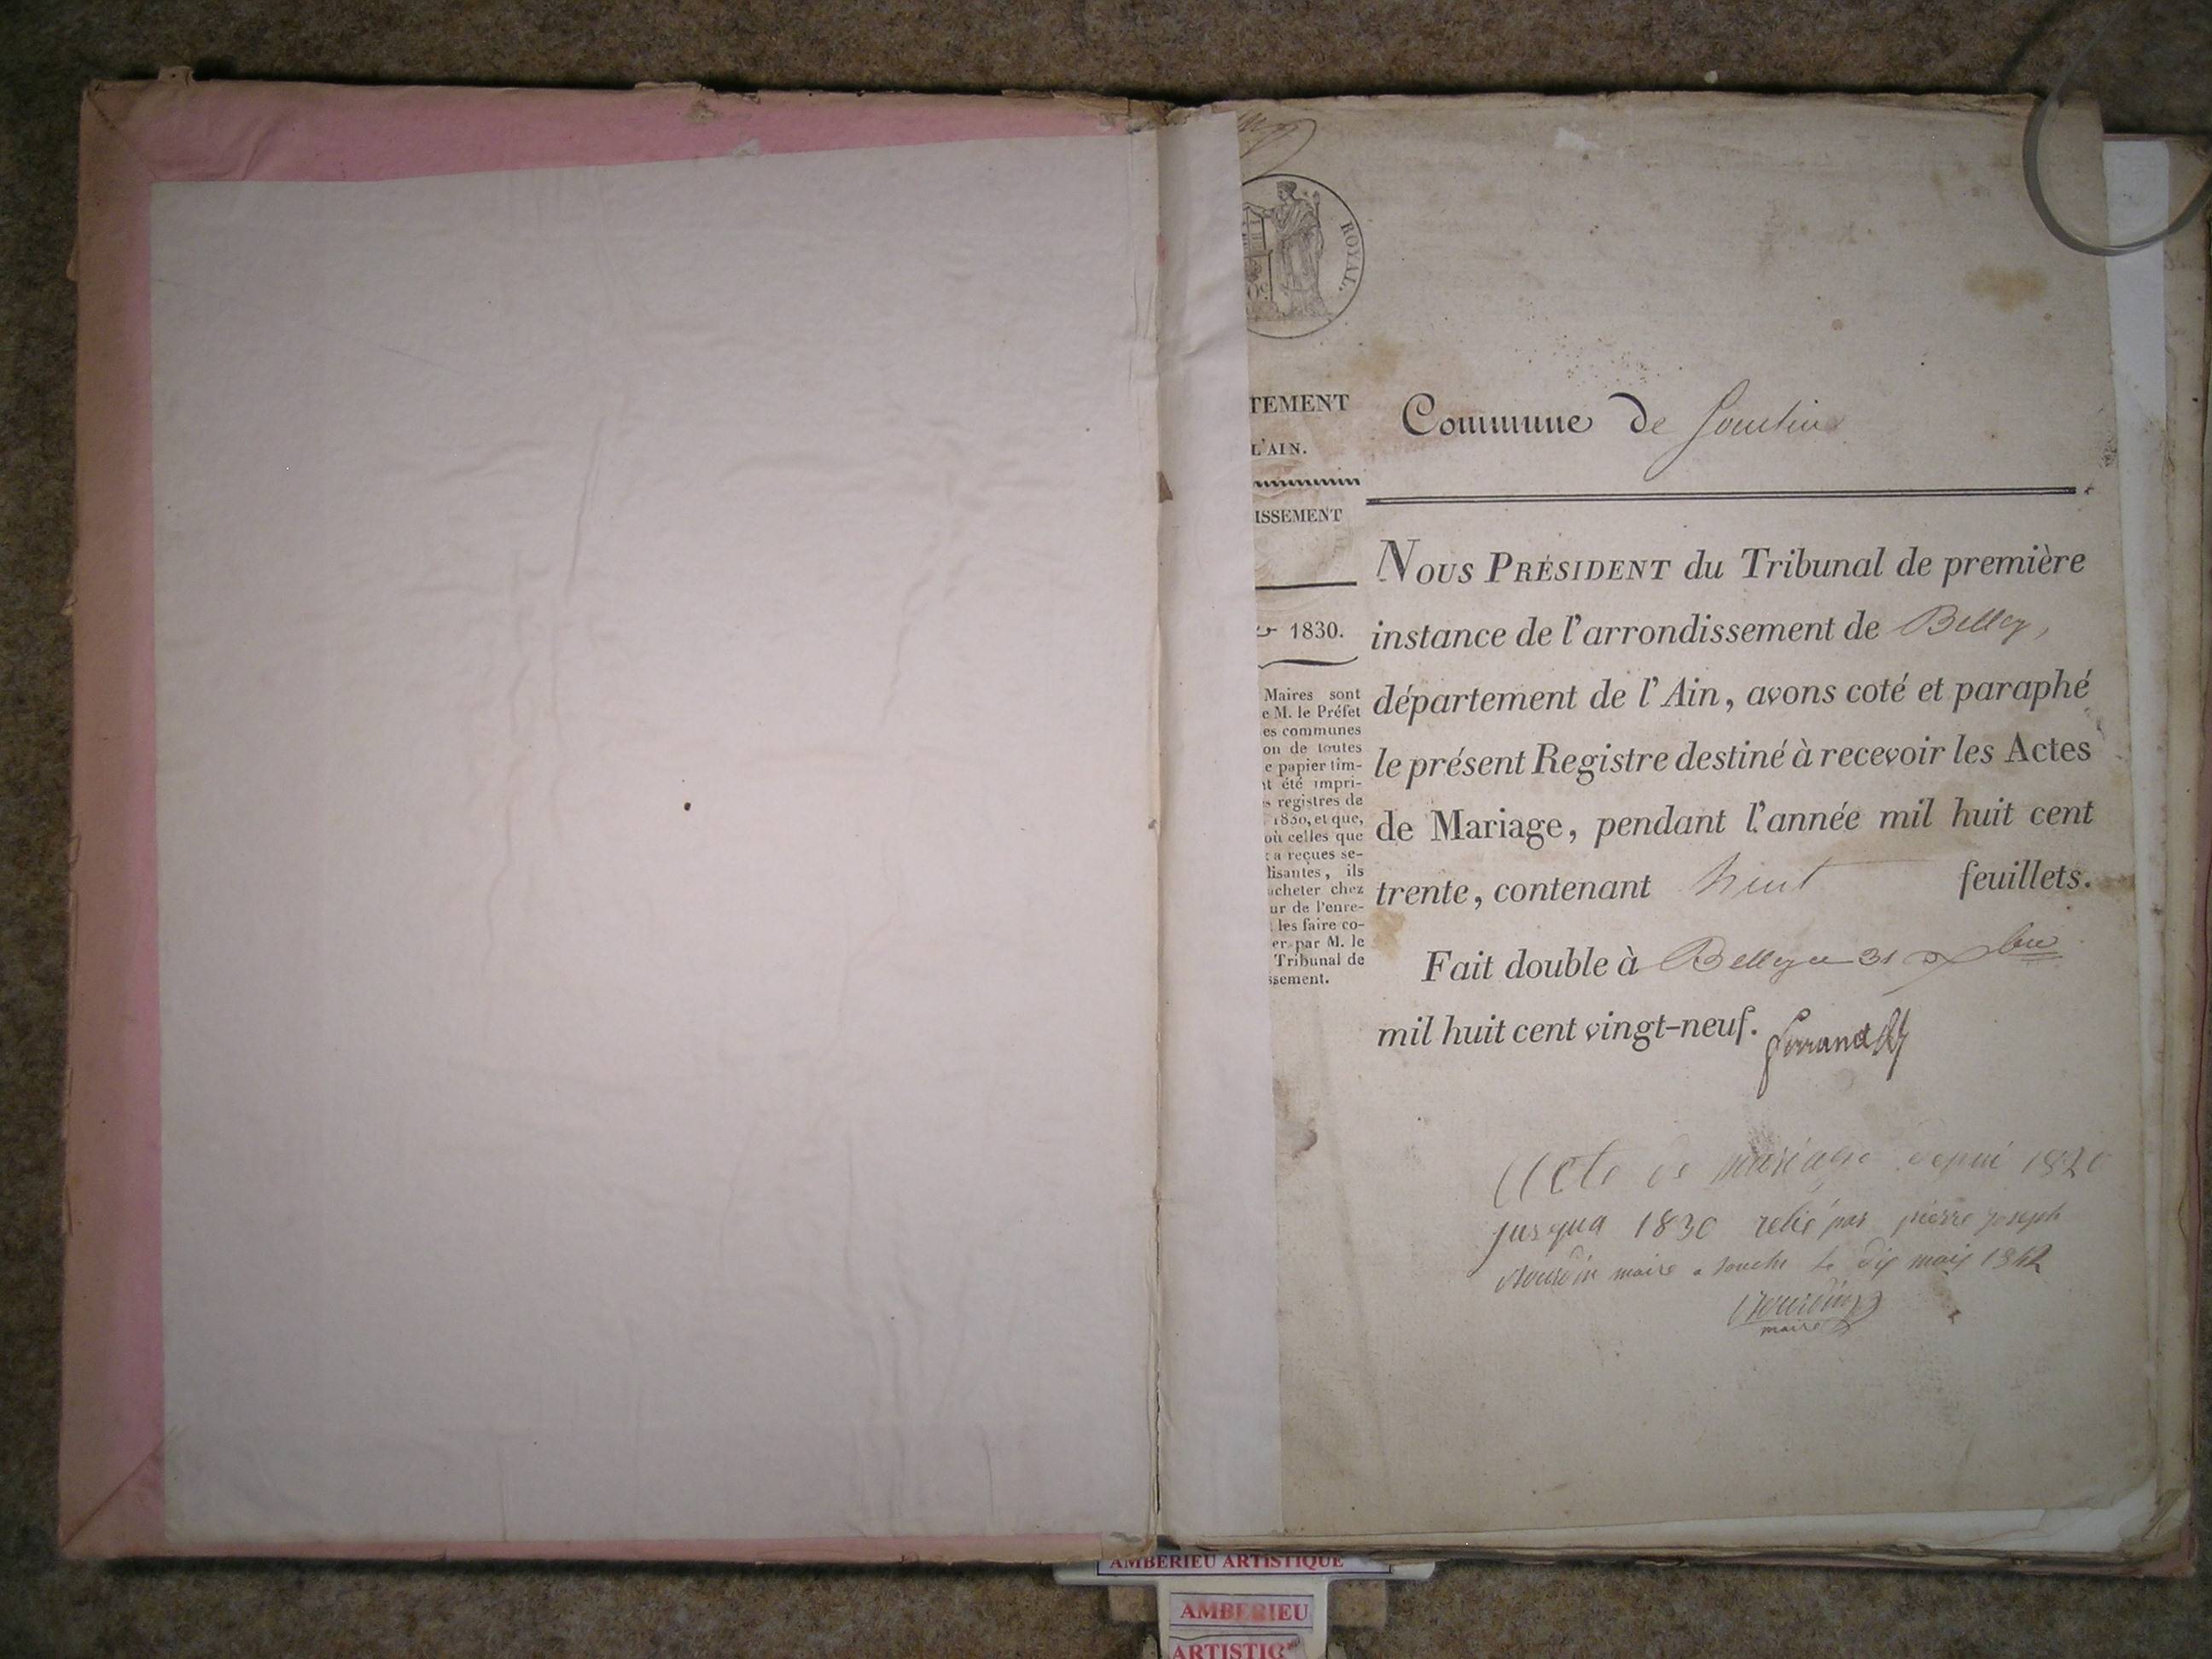 ROYAL.
TEMENT
L'AIN.
ISSEMENT
1830.
Maires sont
e M. le Préfet
es communes
on de toutes
e papier tim-
nt été impri-
s registres de
1830, et que,
où celles que
t a reçues se-
fisantes, ils
acheter chez
ur de l'enre-
les faire co-
er par M. le
Tribunal de
ssement.
Commune de
NOUS PRÉSIDENT du Tribunal de première
instance de l'arrondissement de Belley,
département de l'Ain, avons coté et paraphé
le présent Registre destiné à recevoir les Actes
de Mariage, pendant l'année mil huit cent
trente, contenant huit feuillets.
Fait double à Belley ce 31 Xbre
mil huit cent vingt-neuf.
Acte de mariage depui 1820
jusqua 1830 relié par pierre joseph
maire a le dix 1842
maire
AMBERIEU ARTISTIQUE
AMBERIEU
ARTISTIQ